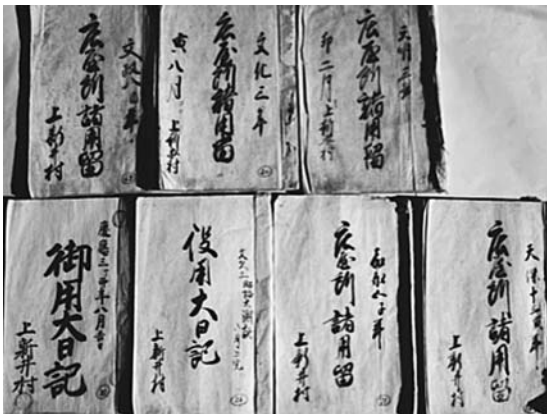 天明三年
庄屋所諸用留
卯二月 上新井村
文化三年
庄屋所諸用留
寅八月 上新井村
文政八年
庄屋所諸用留
上新井村
天保十
庄屋所諸用留
上新井村
嘉永五子年
庄屋所諸用留
上新井村
文久二
役用大日記
上新井村
慶應三丁卯年八月吉
御用大日記
上新井村